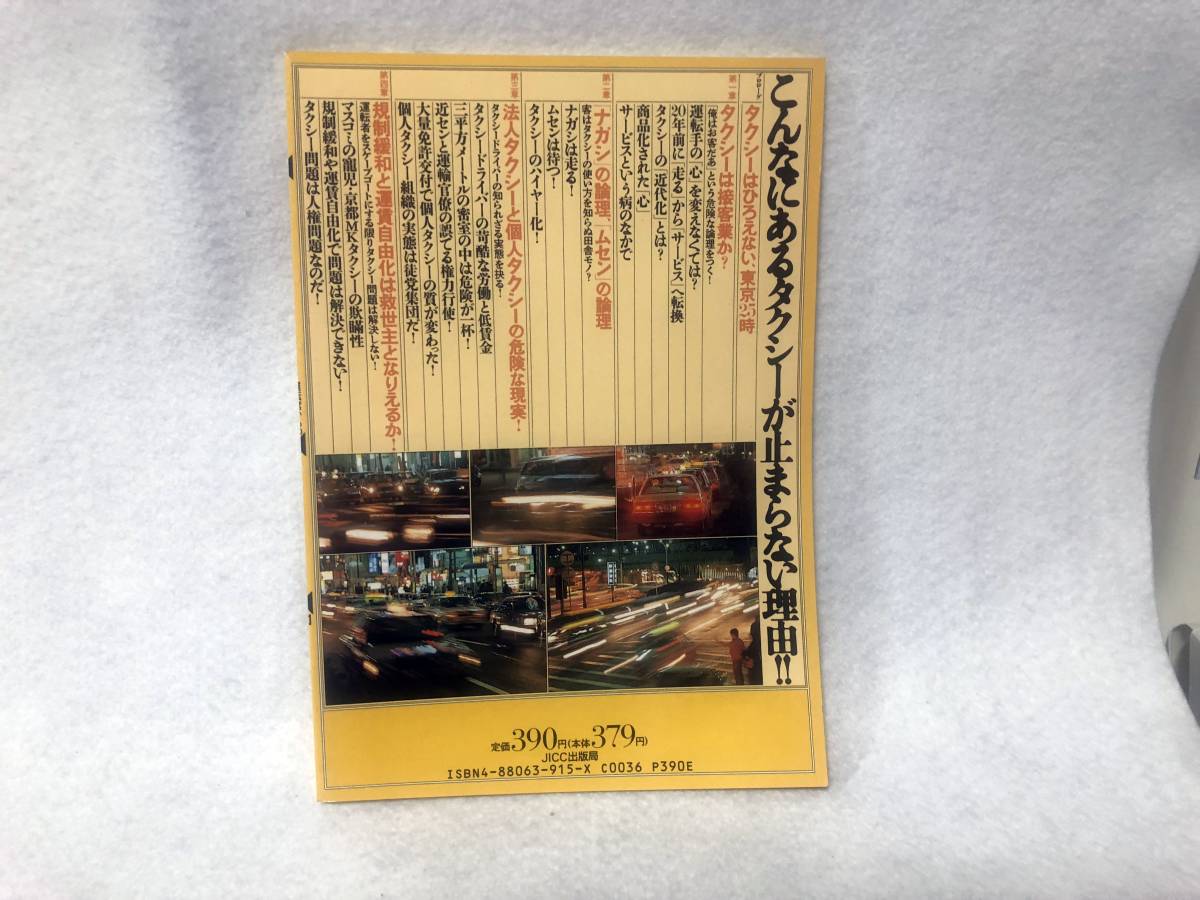 こんなにあるタクシーが止まらない理由!!
プロローグ
タクシーはひろえない、東京25時
第一章
タクシーは接客業か?
「俺はお客だぁ」という危険な論理をつく!
運転手の「心」を変えなくては?
20年前に「走る」から「サービス」へ転換
タクシーの「近代化」とは?
商品化された「心」
サービスという病のなかで
第二章
「ナガシ」の論理、「ムセン」の論理
客はタクシーの使い方を知らぬ田舎モノ?
ナガシは走る!
ムセンは待つ!
タクシーのハイヤー化!
第三章
法人タクシーと個人タクシーの危険な現実!
タクシードライバーの知られざる実態を抉る!
タクシードライバーの苛酷な労働と低賃金
三平方メートルの密室の中は危険が一杯!
近センと運輸官僚の誤てる権力行使!
大量免許交付で個人タクシーの質が変わった!
個人タクシー組織の実態は徒党集団だ!
第四章
規制緩和と運賃自由化は救世主となりえるか!
運転者をスケープゴートにする限りタクシー問題は解決しない!
マスコミの寵児・京都MKタクシーの欺瞞性
規制緩和や運賃自由化で問題は解決できない!
タクシー問題は人権問題なのだ!
定価390円(本体379円)
JICC出版局
ISBN4-88063-915-X C0036 P390E